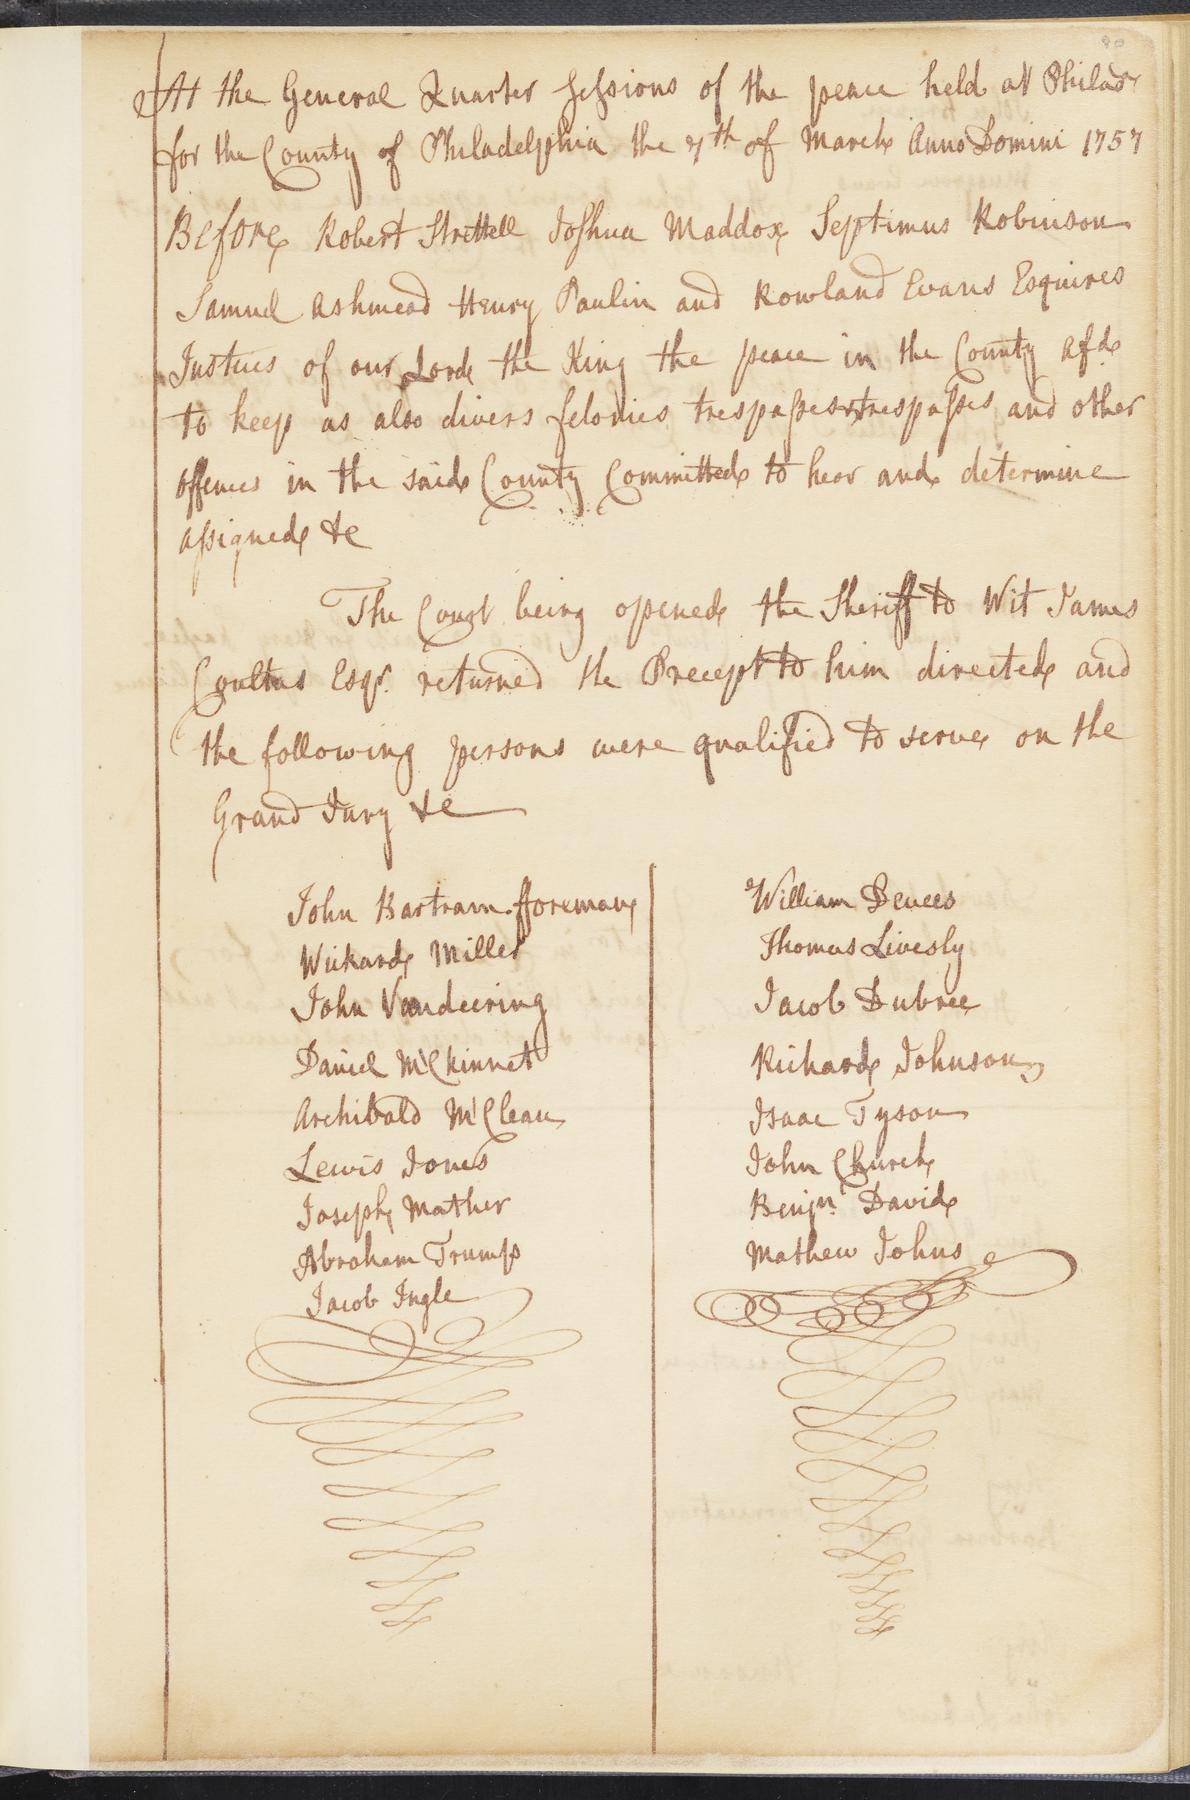 At the General Quarter Sessions of the peace held at Philada
for the County of Philadelphia the 7th of March Anno Domini 1757
Before Robert Strettell Joshua Maddox Septimus Robinson
Samuel Ashmead Henry Paulin and Rowland Evans Esquires
Justices of our Lord the King the peace in the County afd
to keep as also divers felonies trespasses trespasses and other
offences in the said County Committed to hear and determine
assigned &c
The Court being opened the Sheriff to Wit James
Coultas Esqr. returned the Precept to him directed and
the following persons were qualified to serve on the
Grand Jury &c
John Bartram fforeman
Wickard Miller
John Vandeering
Daniel McKinnet
Archibald McClean
Lewis Jones
Joseph Mather
Abraham Trump
Jacob Ingle
William Dewees
Thomas Livesly
Jacob Dubree
Richard Johnson
Isaac Tyson
John Church
Benjn. David
Mathew Johns